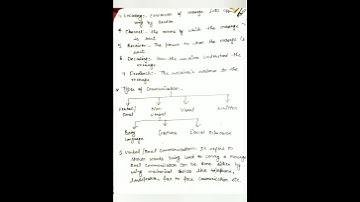 3. Encoding:- Conversion of message into
by Sender
4. Channel:- the means by which the message
is sent
5. Receiver:- The person to whom the message is
sent
6. Decoding:- How the receiver understand the
message
7. Feedback:- The receiver's response to the
message
* Types of Communication:-
Verbal/ Non Visual Written
Oral Verbal
Body Gestures
Language
1. Verbal/Oral Communication:- It refers to
words being used to convey a message
Oral Communication can be done either by
using mechanical devices like telephone,
face to face communication etc.